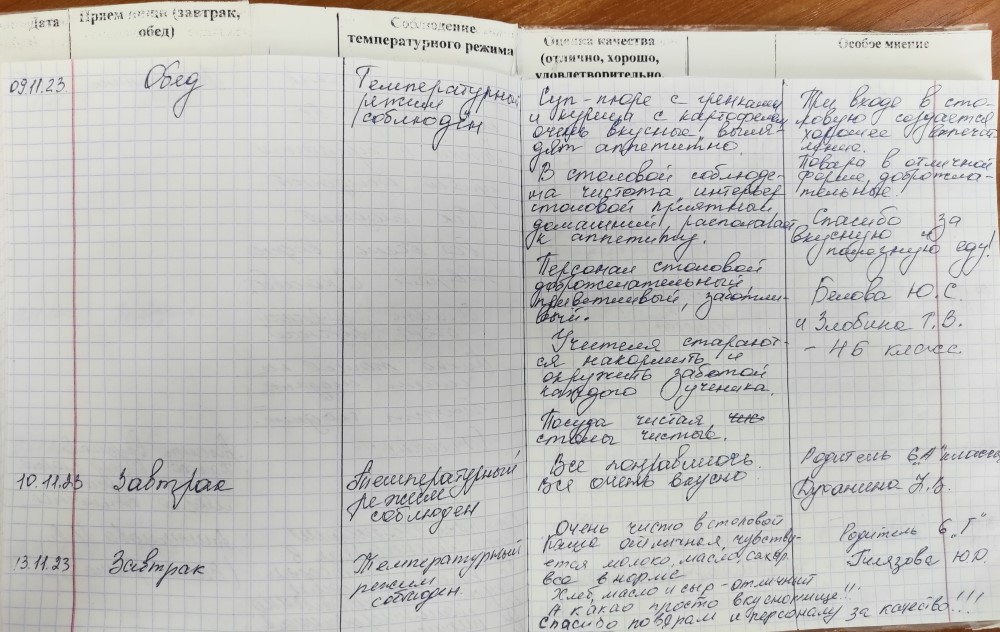 Дата
Прием пищи (завтрак,
обед)
Соблюдение
температурного режима
Оценка качества
(отлично, хорошо,
удовлетворительно,
Особое мнение
09.11.23
Обед
Температурный
режим
соблюдён
Суп-пюре с гренками
и курица с картофелем
очень вкусные, выгля-
дят аппетитно.
В столовой соблюде-
на чистота, интерьер
столовой приятный,
домашний, располагает
к аппетиту.
Персонал столовой
доброжелательный,
приветливый, заботли-
вый.
Учителя старают-
ся накормить и
окружить заботой
каждого ученика.
Посуда чистая
столы чистые.
При входе в сто-
ловую создается
хорошее впечат
ление.
Повара в отличной
форме, доброжела-
тельные.
Спасибо за
вкусную и
полезную еду!
Белова Ю.С.
и Злобина Т.В.
- 4Б класс.
10.11.23
Завтрак
Температурный
режим
соблюден
Все понравилось.
Все очень вкусно
Родитель 6 "А" класса
Н.В.
13.11.23
Завтрак
Температурный
режим
соблюден.
Очень чисто в столовой
Каша отличная, чувству-
ется молоко, масло, сахар
все в норме
Хлеб, масло и сыр - отличный
А какао просто вкуснотище!!!
Спасибо поварам и персоналу за качество!!!
Родитель 6 "Г"
Гилязова Ю.Р.